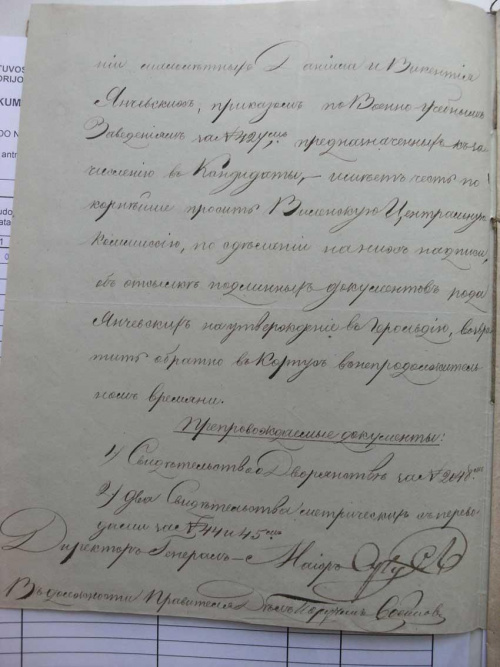 TUVOS
TORIJO
KUM
DO N
antr
udo,
ata
1
0
ніи малолѣтныхъ Даніила и Викентія
Янчевскихъ, приказомъ по Военно-Учебнымъ
Заведеніямъ за № 427мъ предназначенныхъ къ за
численію въ Кандидаты, – имѣетъ честь по
корнѣйше просить Виленскую Центральную
Коммиссію, по сдѣланіи на нихъ надписи,
объ отсылкѣ подлинныхъ документовъ рода
Янчевскихъ на утвержденіе въ Герольдію, возвра
тить обратно въ Корпусъ въ непродолжитель
номъ времени.
Препровождаемые документы:
1) Свидѣтельство о Дворянствѣ за №
2) два Свидѣтельства метрическихъ съ перево
дами за № 44 и 45мъ
Директоръ Генералъ – Маіоръ
Въ должности Правителя Дѣлъ Поручикъ